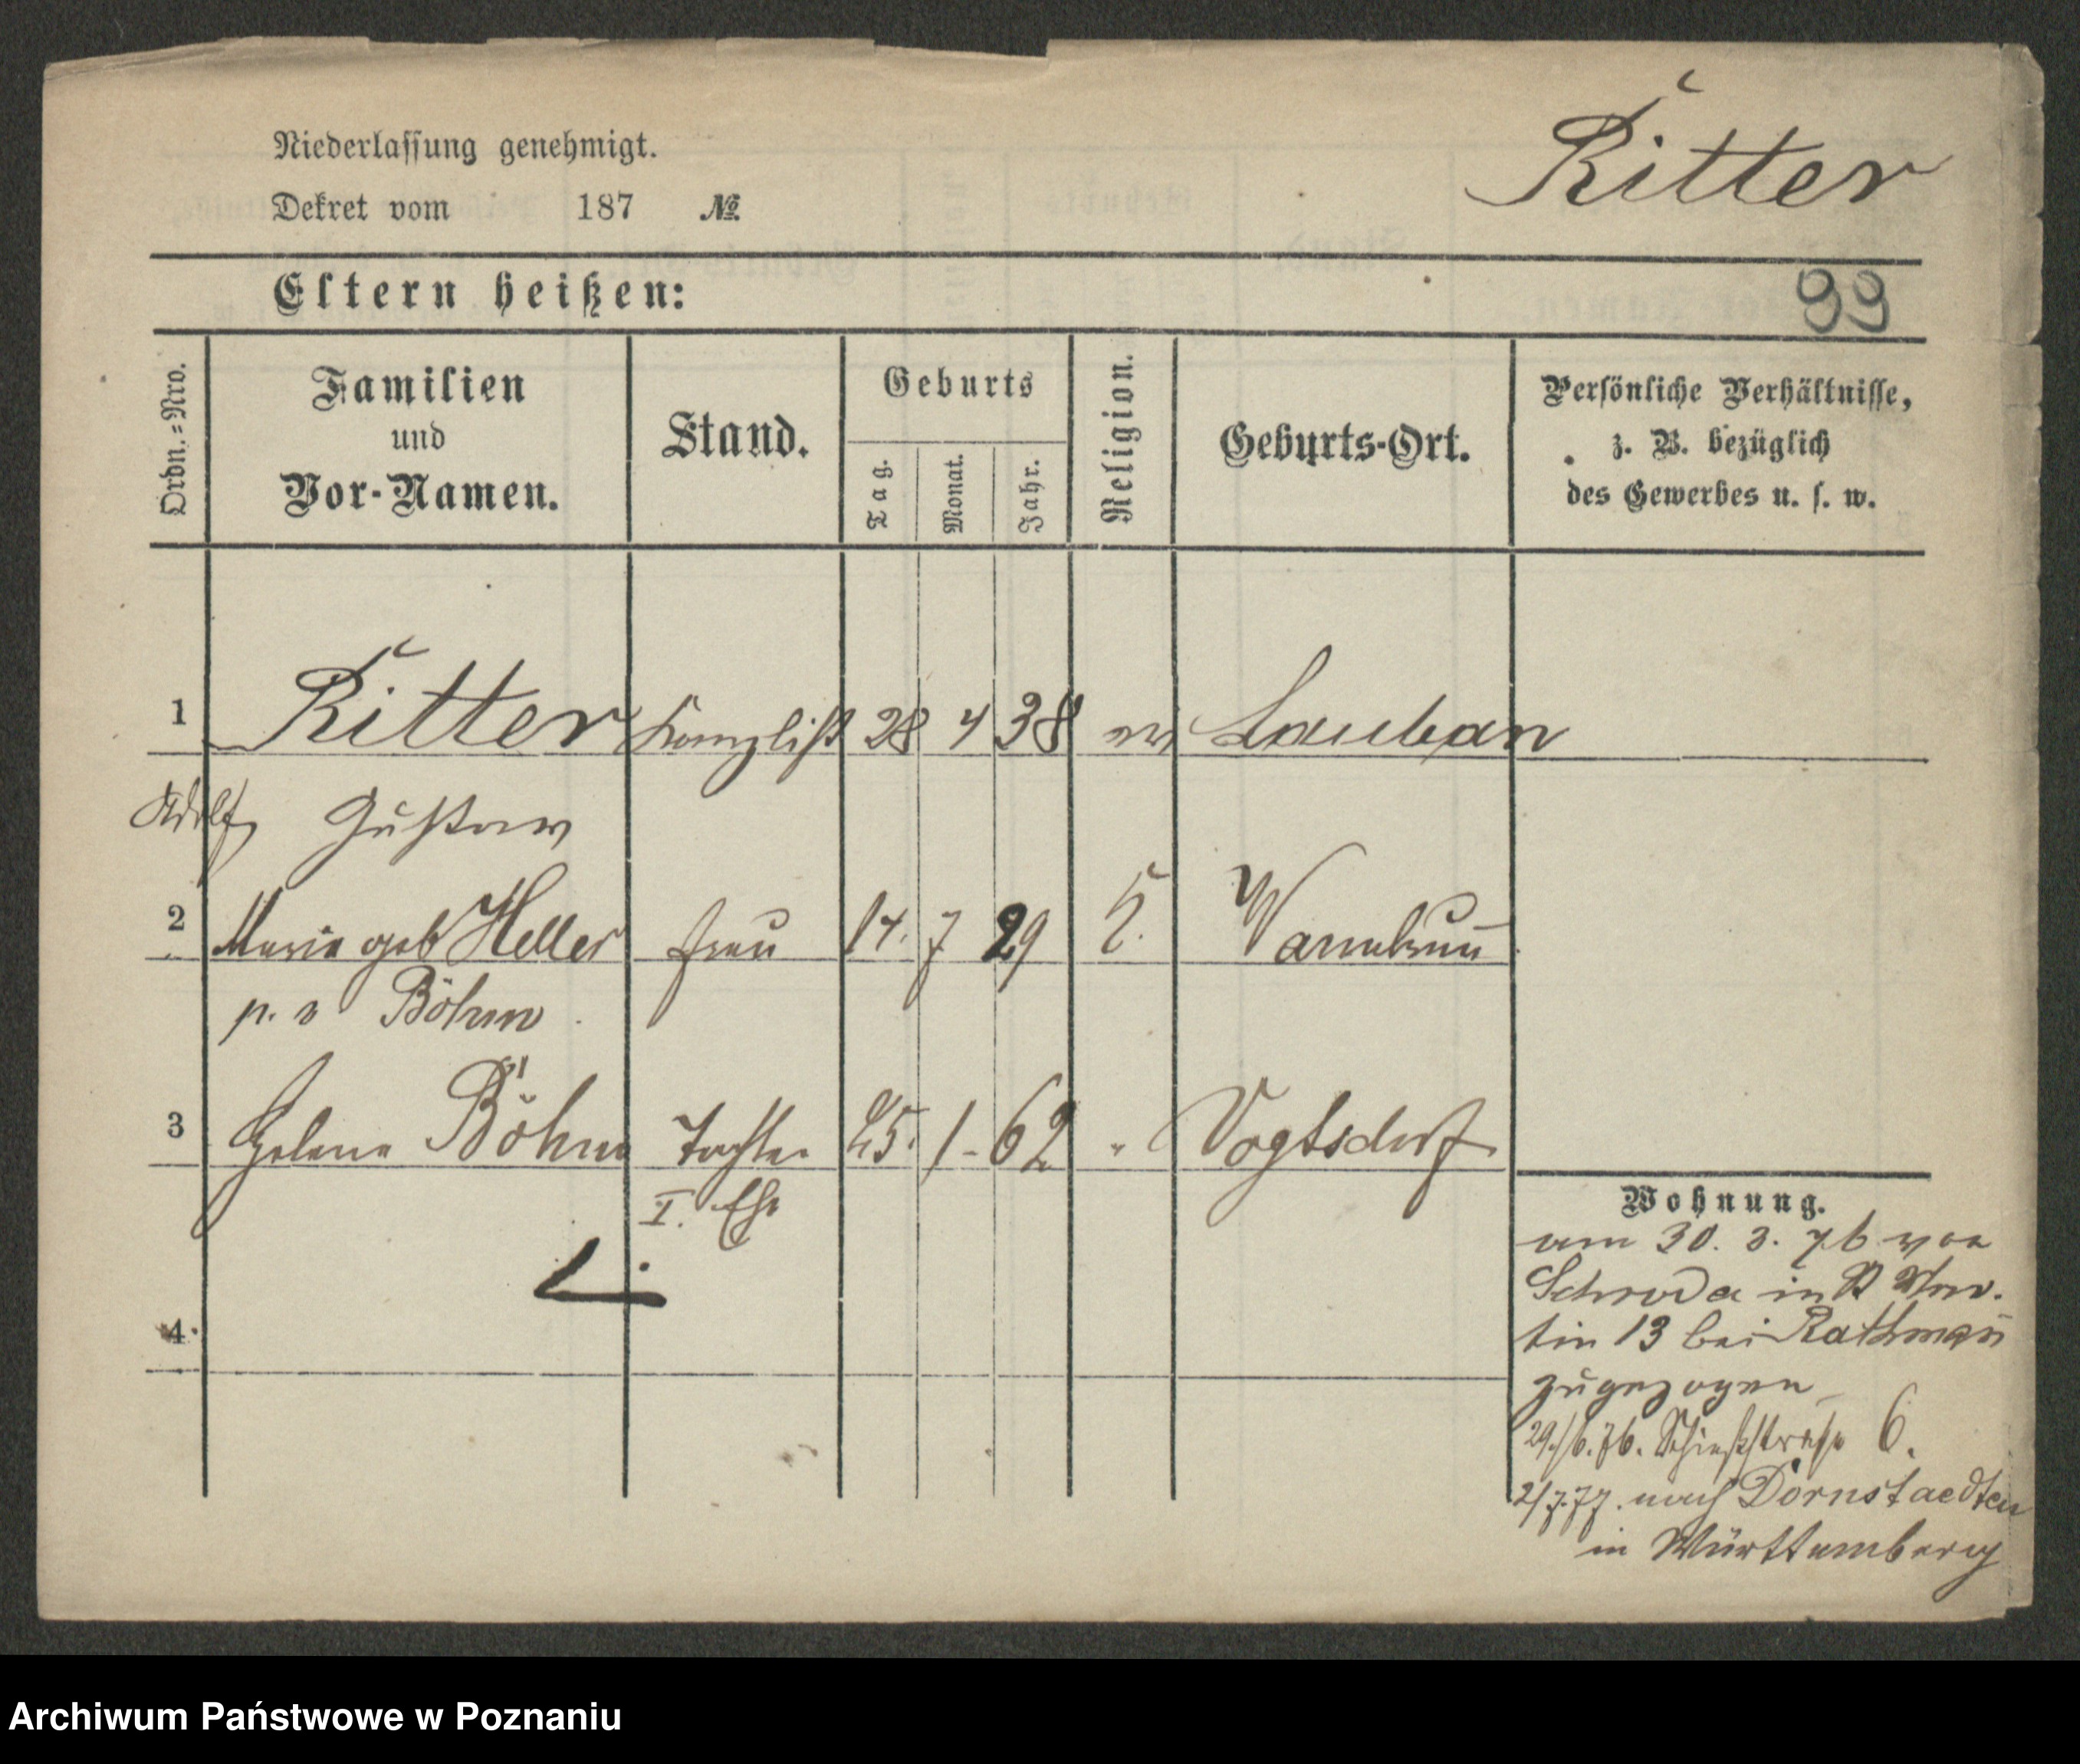 Ritter
Niederlassung genehmigt.
Dekret vom 187 №
Eltern heißen:
99
Ordn.=Nro.
Familien
und
Vor-Namen.
Stand.
Geburts
Tag.
Monat.
Jahr.
Religion.
Geburts-Ort.
Persönliche Verhältnisse,
z. B. bezüglich
des Gewerbes u. s. w.
1 Ritter Kanzlist 28 4 38 ev Lauban
Adolf Gustav
2 Marie geb Heller Frau 14. 7 29 K. Warmbrunn
p. v Böhm
3 Helene Böhm Tochter 25. 1 - 62 " Vogtsdorf
I. Ehe
4.
Wohnung.
am 30. 3. 76 von
Schroda in St Mar.
tin 13 bei Rathman̄
zugezogen
29./6. 76. Schießstraße 6.
2/7. 77. nach Dornstaedten
in Württemberg
Archiwum Państwowe w Poznaniu